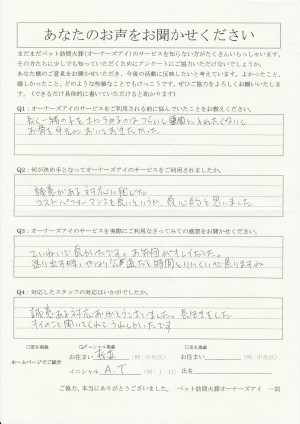 あなたのお声をお聞かせください
まだまだペット訪問火葬(オーナーズアイ)のサービスを知らない方がたくさんいらっしゃいます。
その方たちに少しでも知っていただくためにアンケートにご協力いただけないでしょうか。
あなた様のご意見をお聞かせいただき、今後の活動に反映したいと考えています。よかったこと、
嬉しかったこと、どのような些細なことでもけっこうです。ぜひご協力をよろしくお願いいたします。
(できるだけ具体的に書いていただけると助かります)
Q1：オーナーズアイのサービスをご利用される前に悩んでいたことをお教えください。
長く一緒の子を土にうめるのはつらいし
お骨を手元においておきたかった
Q2：何が決め手となってオーナーズアイのサービスをご利用されましたか。
誠意がある対応に感じた
コストパフォーマンスも良いというか、良心的と思いました
Q3：オーナーズアイのサービスを実際にご利用なさってみての感想をお聞かせください。
ていねいで良かったです。
Q4：対応したスタッフの対応はいかがでしたか。
誠意ある対応ありがとうございました。
うれしかったです
□匿名掲載
☑イニシャル掲載
□実名掲載
ホームページでご紹介
お住まい
(例：中央区)
お住まい
(例：中央区)
イニシャル A.T (例：J.H)
氏名
ご協力、本当にありがとうございました。 ペット訪問火葬オーナーズアイ 一同